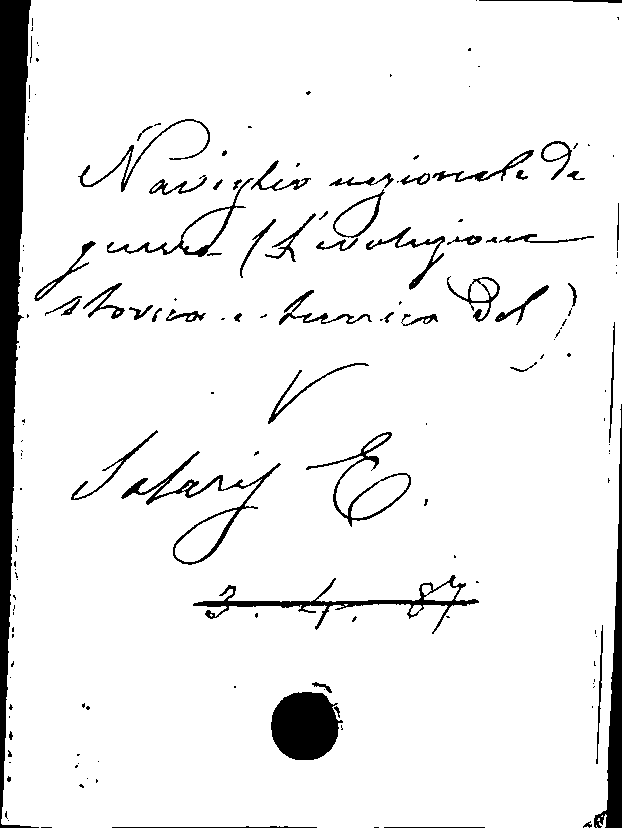 Naviglio nazionale di
guerra (L'evoluzione
storica e tecnica del).
V
Salaris E.
3. 4. 87